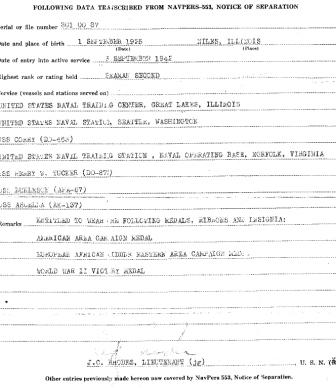 FOLLOWING DATA TRANSCRIBED FROM NAVPERS-553, NOTICE OF SEPARATION
Serial or file number
Date and place of birth 1 SEPTEMBER NILES, ILLINOIS
(Date) (Place)
Date of entry into active service SEPTEMBER
Highest rank or rating held SEAMAN SECOND
Service (vessels and stations served on)
UNITED STATES NAVAL TRAINING CENTER, GREAT LAKES, ILLINOIS
UNITED STATES NAVAL STATION, SEATTLE, WASHINGTON
USS CORRY (DD-463)
UNITED STATES NAVAL TRAINING STATION, NAVAL OPERATING BASE, NORFOLK, VIRGINIA
USS HENRY W. TUCKER (DD-875)
USS
USS (AK-137)
Remarks ENTITLED TO WEAR THE FOLLOWING MEDALS, RIBBONS AND INSIGNIA:
AMERICAN AREA CAMPAIGN MEDAL
EUROPEAN AFRICAN MIDDLE EASTERN AREA CAMPAIGN MEDAL
WORLD WAR II VICTORY MEDAL
J.C. RHODES, LIEUTENANT (jg) U. S. N.
Other entries previously made hereon now covered by NavPers 553, Notice of Separation.